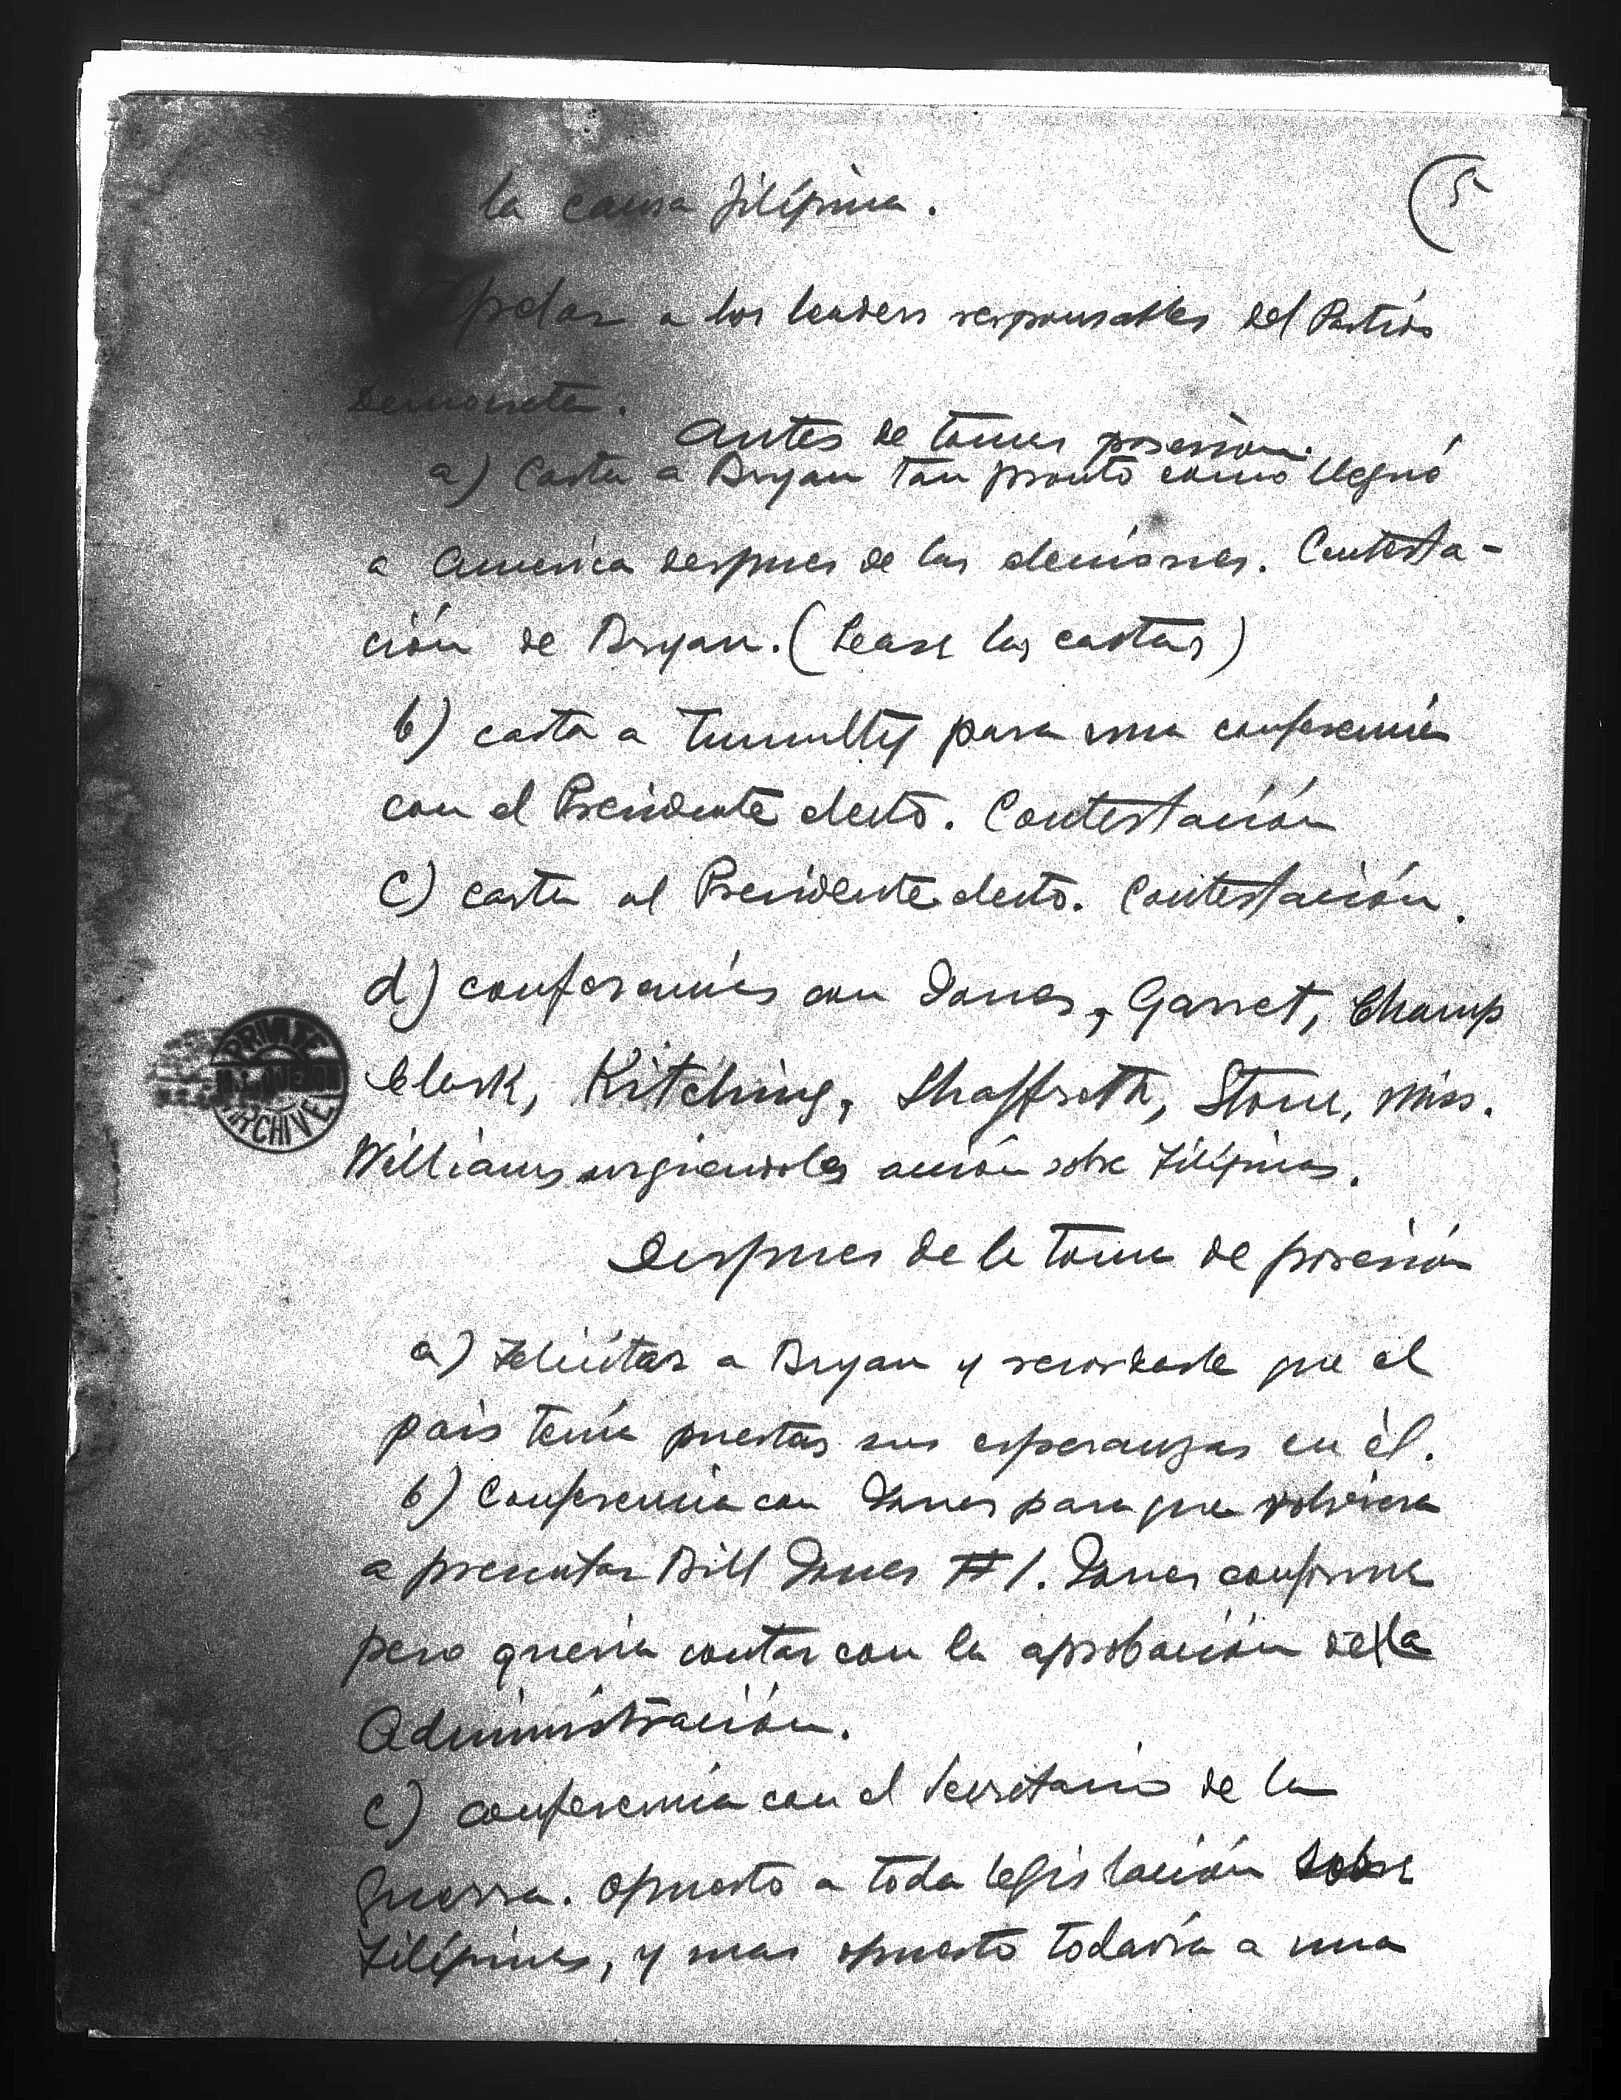 5
la causa filipina.
Apelar a los leaders responsables del Partido
Democrata.
Antes de tomar posesion.
a) Carta a Bryan tan pronto como llegué
a America despues de las elecciones. Contesta-
ción de Bryan. (Lease las cartas)
b) carta a Tumulty para una conferencia
con el Presidente electo. Contestación
c) carta al Presidente electo. Contestación.
d) conferencias con Jones, Garret, Champ
Clark, Kitching, Shaffroth, Stone, Miss.
Williams urgiendoles acción sobre Filipinas.
Despues de la toma de posesión
a) Felicitar a Bryan y recordarle que el
pais tenía puestas sus esperanzas en él.
b) Conferencia con Jones para que volviera
a presentar Bill Jones #1. Jones conforme
pero queria contar con la aprobación de la
Administración.
c) conferencia con el Secretario de la
Guerra. Opuesto a toda legislación sobre
Filipinas, y mas opuesto todavía a una
PRIVATE
ARCHIVE